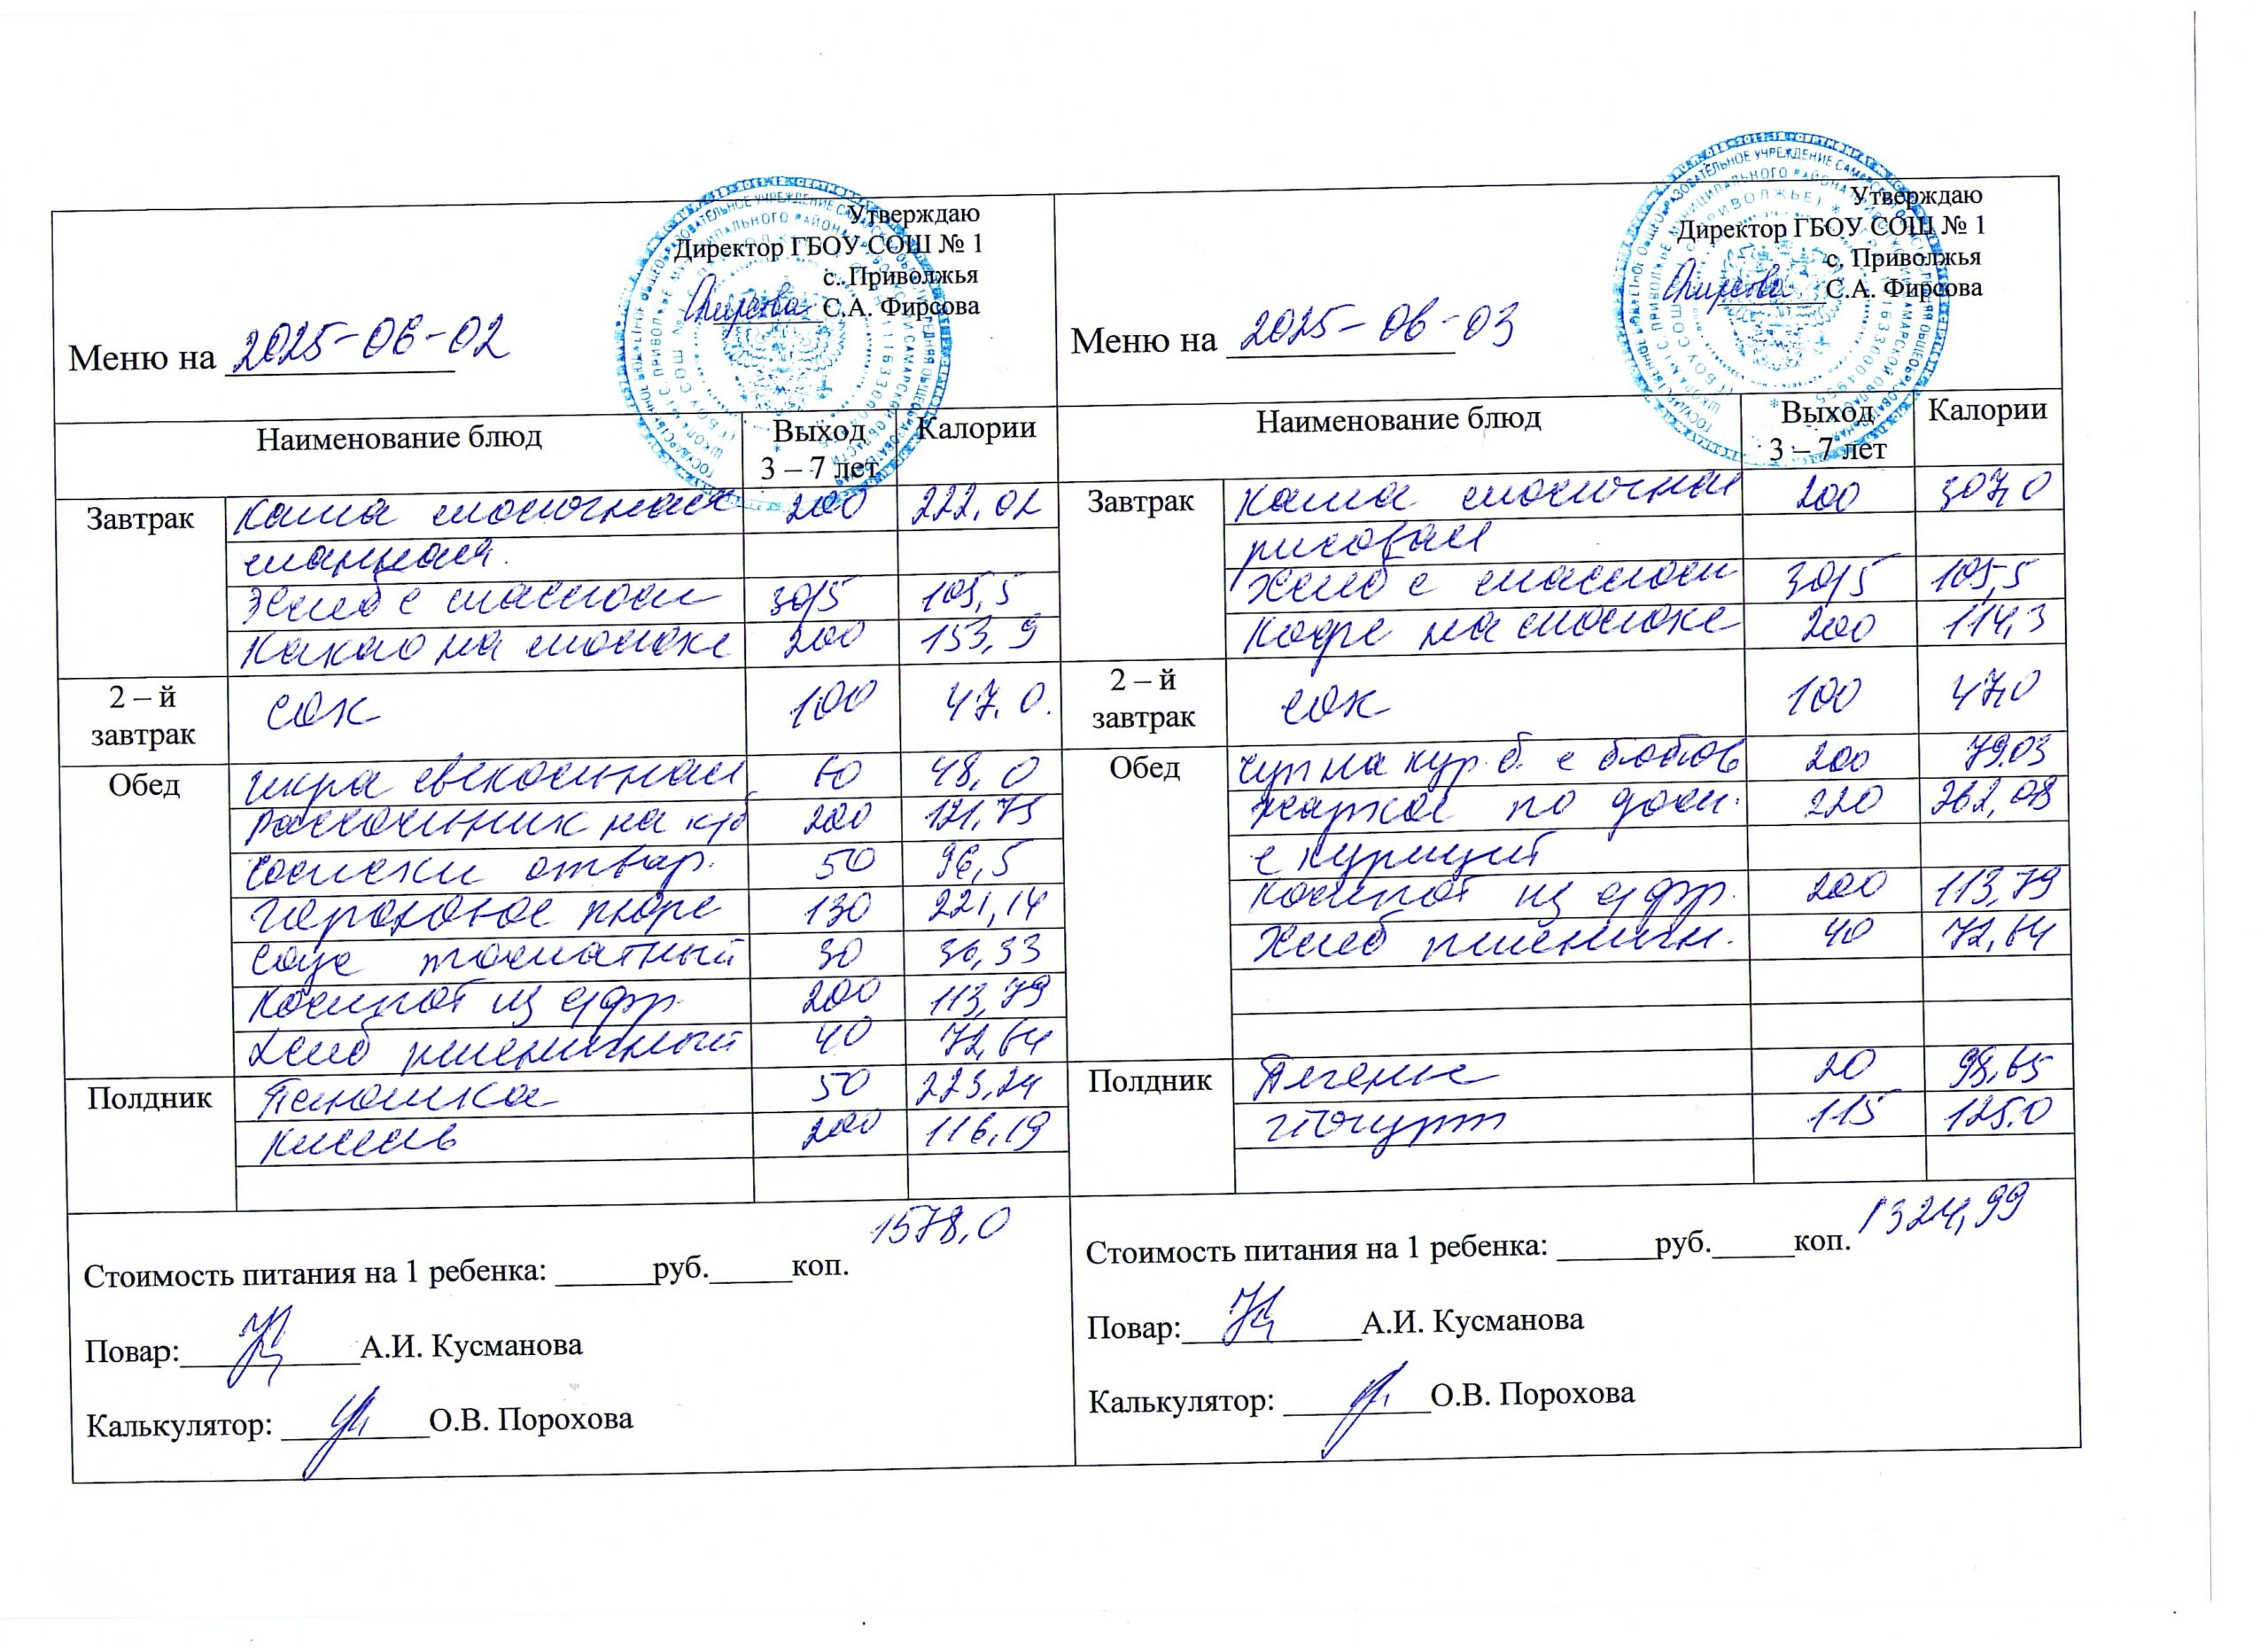 Утверждаю
Директор ГБОУ СОШ № 1
с. Приволжья
С.А. Фирсова
Меню на 2025-06-02
Наименование блюд Выход 3 – 7 лет Калории
Завтрак Каша молочная 200 222,02
манная.
Хлеб с маслом 30/5 105,5
Какао на молоке 200 153,9
2 – й завтрак сок 100 47,0.
Обед икра свекольная 60 48,0
Рассольник на к/б 200 121,75
Сосиски отвар. 50 96,5
Гороховое пюре 130 221,14
Соус томатный 30 30,33
Компот из с/фр 200 113,79
Хлеб пшеничный 40 72,64
Полдник 50 223,24
Кисель 200 116,19
1578,0
Стоимость питания на 1 ребенка: ______руб._____коп.
Повар:___________А.И. Кусманова
Калькулятор: _________О.В. Порохова
Утверждаю
Директор ГБОУ СОШ № 1
с. Приволжья
С.А. Фирсова
Меню на 2025-06-03
Наименование блюд Выход 3 – 7 лет Калории
Завтрак Каша молочная 200 307,0
рисовая
Хлеб с маслом 30/5 105,5
Кофе на молоке 200 114,3
2 – й завтрак сок 100 47,0
Обед суп на кур.б. с бобов 200 79,03
жаркое по дом. 220 262,08
с курицей
Компот из с/фр. 200 113,79
Хлеб пшеничн. 40 72,64
Полдник Печенье 20 98,65
йогурт 115 125,0
1324,99
Стоимость питания на 1 ребенка: ______руб._____коп.
Повар:___________А.И. Кусманова
Калькулятор: _________О.В. Порохова